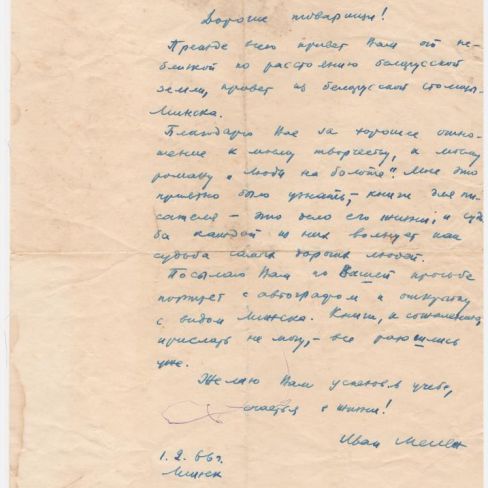 Дорогие товарищи!
Прежде всего привет Вам от не-
близкой по расстоянию белорусской
земли, привет из белорусской столицы -
Минска.
Благодарю Вас за хорошее отно-
шение к моему творчеству, к моему
роману "Люди на болоте". Мне это
приятно было узнать, - книги для пи-
сателя - это дело его жизни, и судь-
ба каждой из них волнует как
судьба самых дорогих людей.
Посылаю Вам по Вашей просьбе
портрет с автографом и открытку
с видом Минска. Книги, к сожалению,
прислать не могу, - все разошлись
уже.
Желаю Вам успехов в учебе,
счастья в жизни!
Иван Мележ
1.2.66 г.
Минск